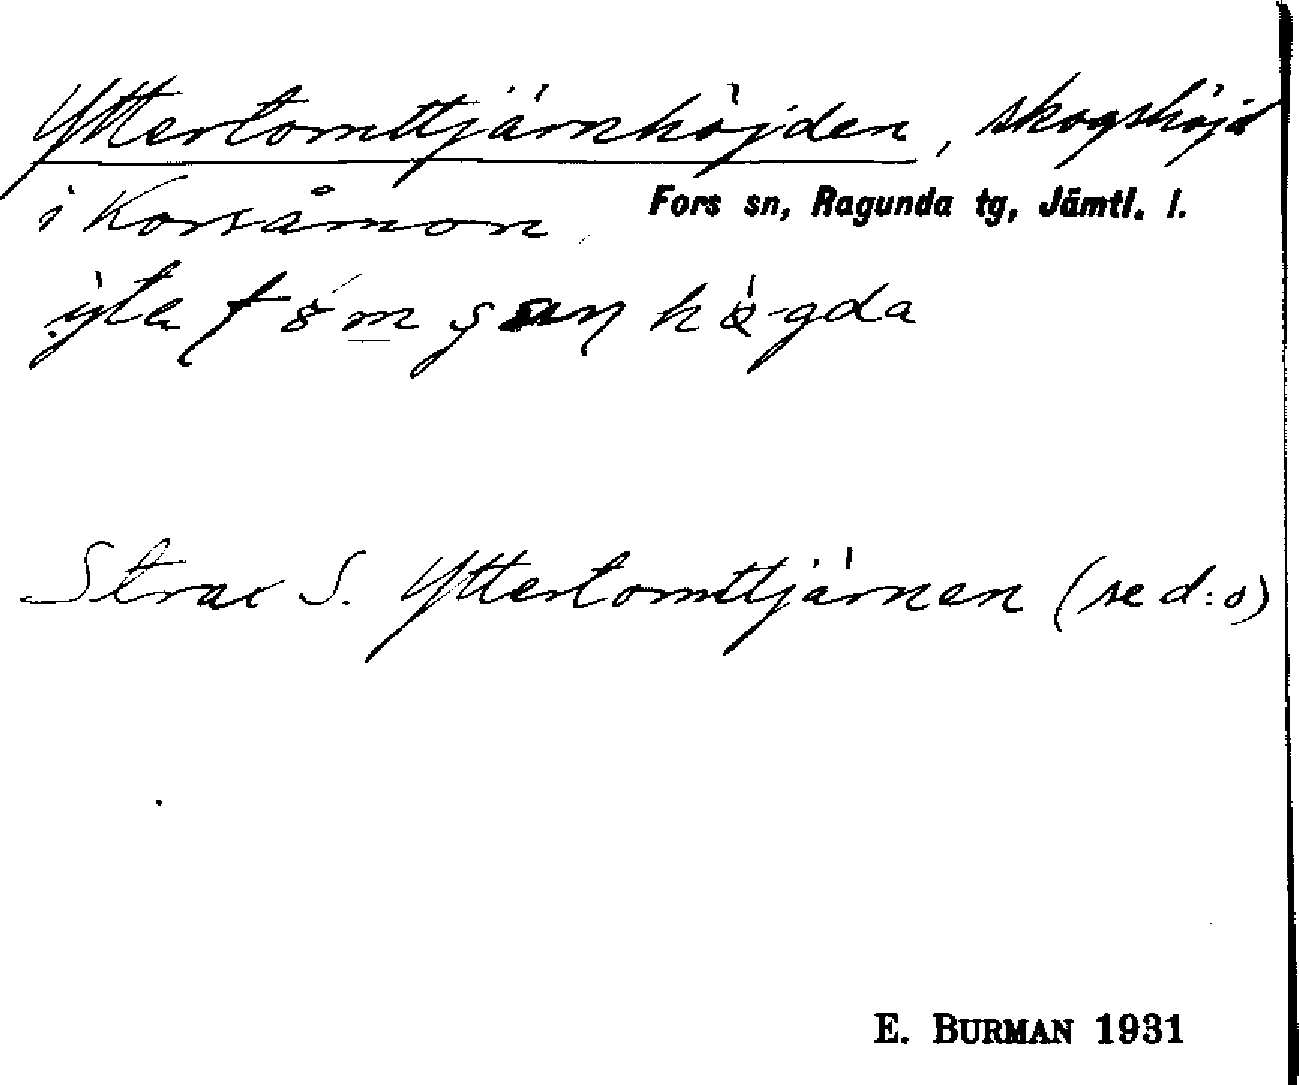 Yttertomttjärnhöjden, skogshöjd
i Korsåmon
Fors sn, Ragunda tg, Jämtl. l.
Strax S. Yttertomttjärnen (se d:o)
E. BURMAN 1931